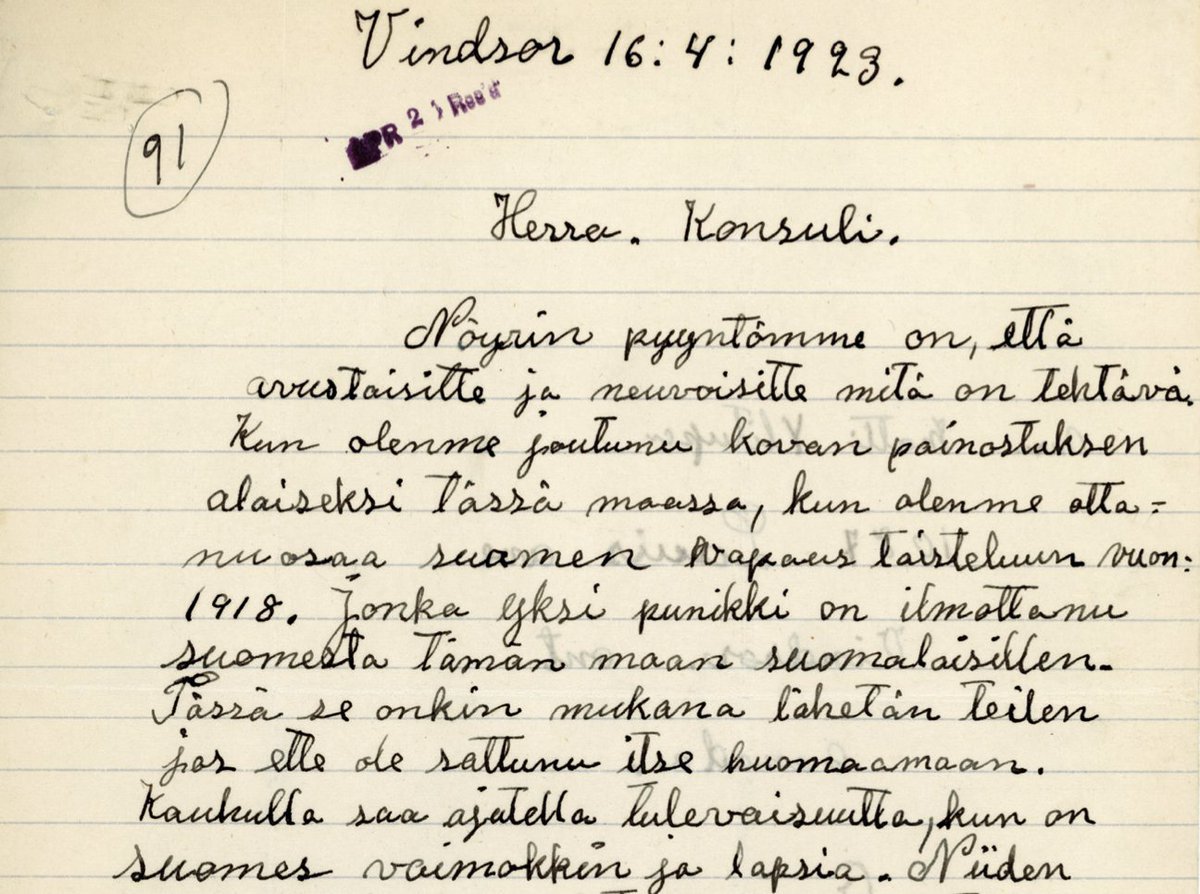 Vindsor 16:4: 1923.
APR 21 Rec'd
91
Herra. Konsuli.
Nöyrin pyyntömme on, että
avustaisitte ja neuvoisitte mitä on tehtävä.
Kun olenme joutunu kovan painostuksen
alaiseksi tässä maassa, kun olenme otta=
nu osaa suomen vapaus taisteluun vuon:
1918. Jonka yksi punikki on ilmottanu
suomesta tämän maan suomalaisillen.
Tässä se onkin mukana lähetän teilen
jos ette ole sattunu itse huomaamaan.
Kauhulla saa ajatella tulevaisuutta, kun on
suomes vaimokkin ja lapsia. Niiden